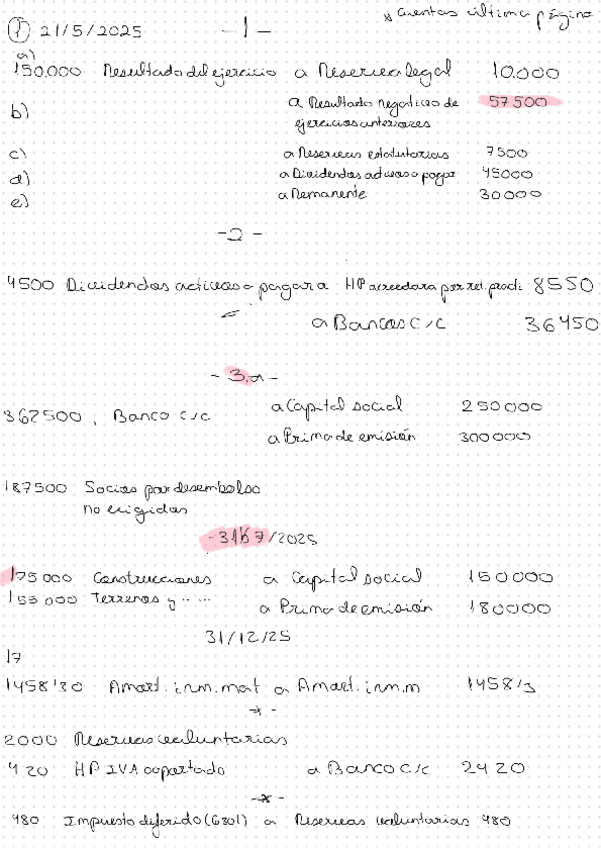 * Cuentas última página
① 21/5/2025 -1-
a)
150.000 Resultado del ejercicio a Reserva legal 10.000
b) a Resultado negativo de 57500
ejercicios anteriores
c) a Reservas estatutarias 7500
d) a Dividendos activos a pagar 45000
e) a Remanente 30000
-2-
4500 Dividendos activos a pagar a HP acreedora por ret. pract. 8550
a Bancos c/c 36450
- 3.a -
362500, Banco c/c a Capital social 250000
a Prima de emisión 300000
187500 Socios por desembolso
no exigidos
7/2025
175000 Construcciones a Capital social 150000
155000 Terrenos y ..... a Prima de emisión 180000
31/12/25
17
1458'30 Amort. inm. mat a Amort. inm. m 1458'3
-*-
2000 Reservas voluntarias
420 HP IVA soportado a Banco c/c 2420
-*-
480 Impuesto diferido (6301) a Reservas voluntarias 480